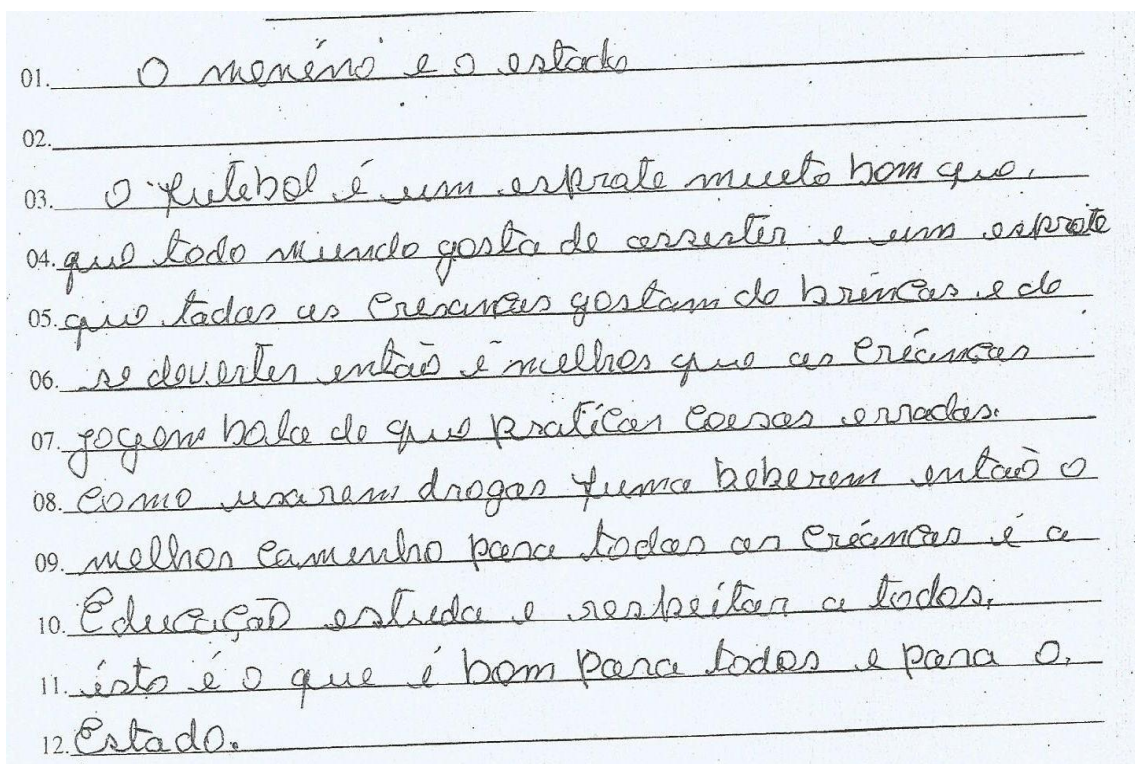 01. O menino e o estado
02.
03. O futebol é um esprate muito bom que.
04. que todo mundo gosta de assister e um esprote
05. que todas as Creanças gostam de brincar e de
06. se deverter então é melhor que as Crianças
07. jogem bola do que praticar coesas erradas.
08. como usarem drogas fuma beberem então o
09. melhor camenho para todas as Crianças é a
10. Educação estuda e respeitar a todos.
11. isto é o que é bom para todos e para o.
12. Estado.